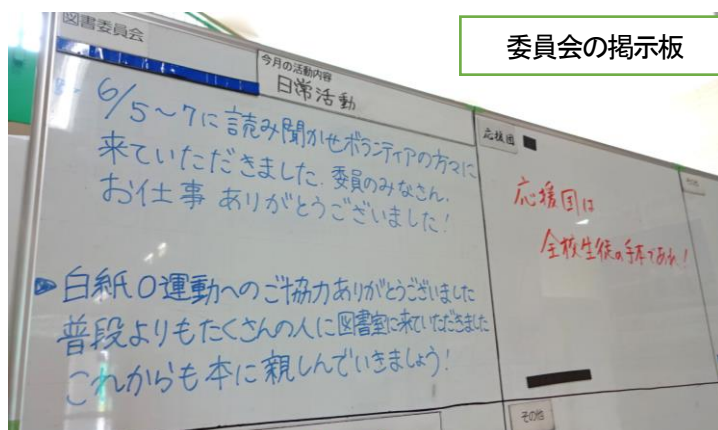 委員会の掲示板
図書委員会
今月の活動内容
日常活動
6/5~7に読み聞かせボランティアの方々に
来ていただきました。委員のみなさん、
お仕事 ありがとうございました!
白紙0運動へのご協力ありがとうございました
普段よりもたくさんの人に図書室に来ていただきました
これからも本に親しんでいきましょう!
応援団
応援団は
全校生徒の手本であれ!
その他
その他